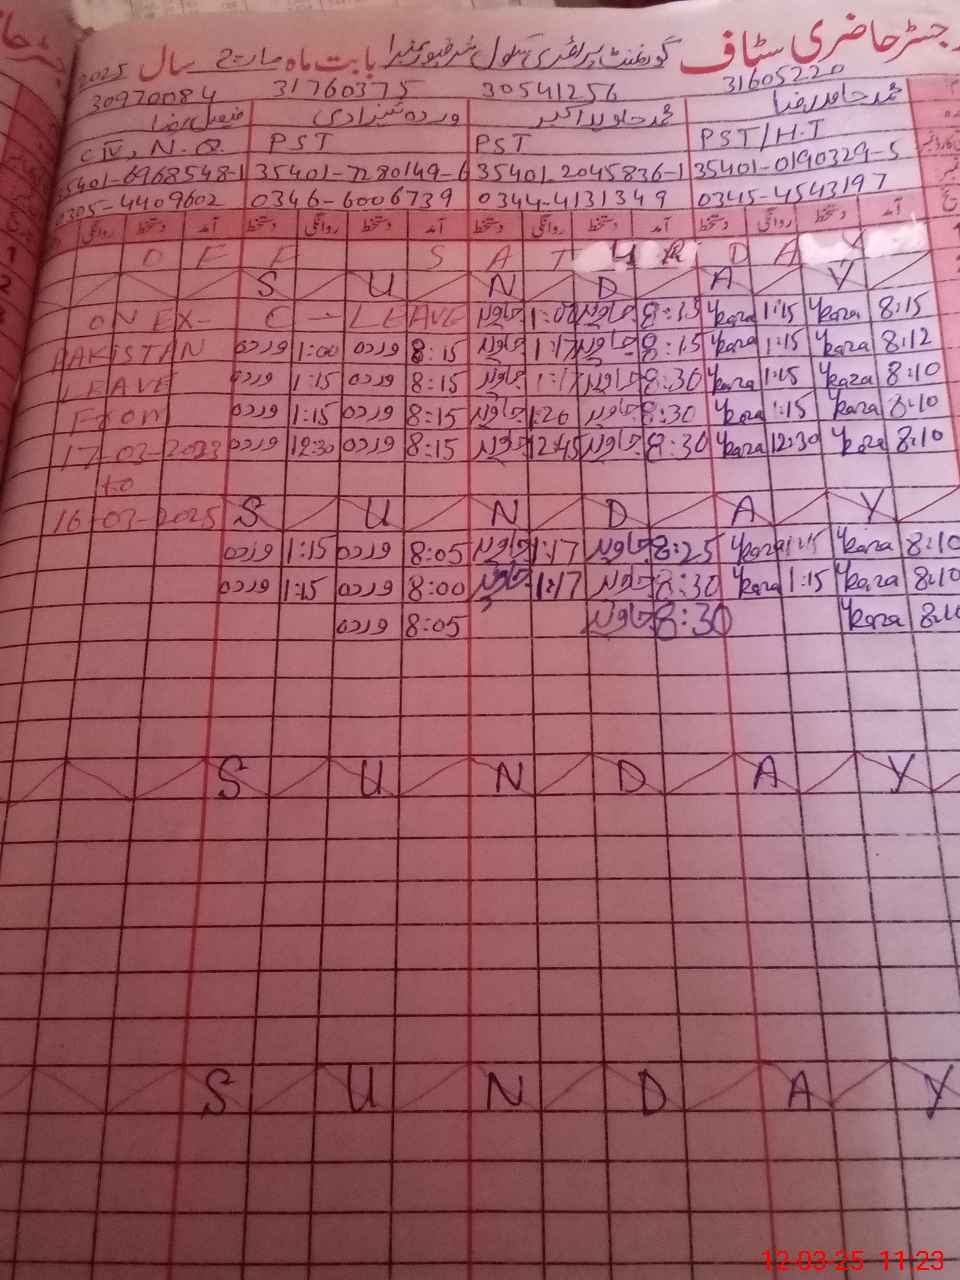 رجسٹر حاضری سٹاف گورنمنٹ پرائمری سکول بابت ماہ مارچ سال 2025
31605220 30541256 31760375 30970084
محمد حامد رضا محمد جاوید اکبر وردہ شہزادی فیصل رضا
PST/H.T PST PST
35401-0190329-5 35401-2045836-1 35401-7280149-6 35401-6968548-1
0345-4543197 0344-4131349 0346-6006739 0305-4409602
آمد دستخط روانگی دستخط آمد دستخط روانگی دستخط آمد دستخط روانگی دستخط آمد دستخط روانگی
1 O F F S A T U R D A Y
2 S U N D A Y
ON EX- LEAVE جاوید 1:02 جاوید 8:15 1:15 8:15
PAKISTAN وردہ 1:00 وردہ 8:15 جاوید 1:17 جاوید 8:15 1:15 8:12
LEAVE وردہ 1:15 وردہ 8:15 جاوید 1:17 جاوید 8:30 1:15 8:10
From وردہ 1:15 وردہ 8:15 جاوید 1:20 جاوید 8:30 1:15 8:10
17-03-2023 وردہ 12:30 وردہ 8:15 جاوید 12:45 جاوید 8:30 12:30 8:10
to
16-03-2025 S U N D A Y
وردہ 1:15 وردہ 8:05 جاوید 1:17 جاوید 8:25 1:15 8:10
وردہ 1:15 وردہ 8:00 جاوید 1:17 جاوید 8:30 1:15 8:10
وردہ 8:05 جاوید 8:30
S U N D A Y
S U N D A Y
12-03-25 11:23